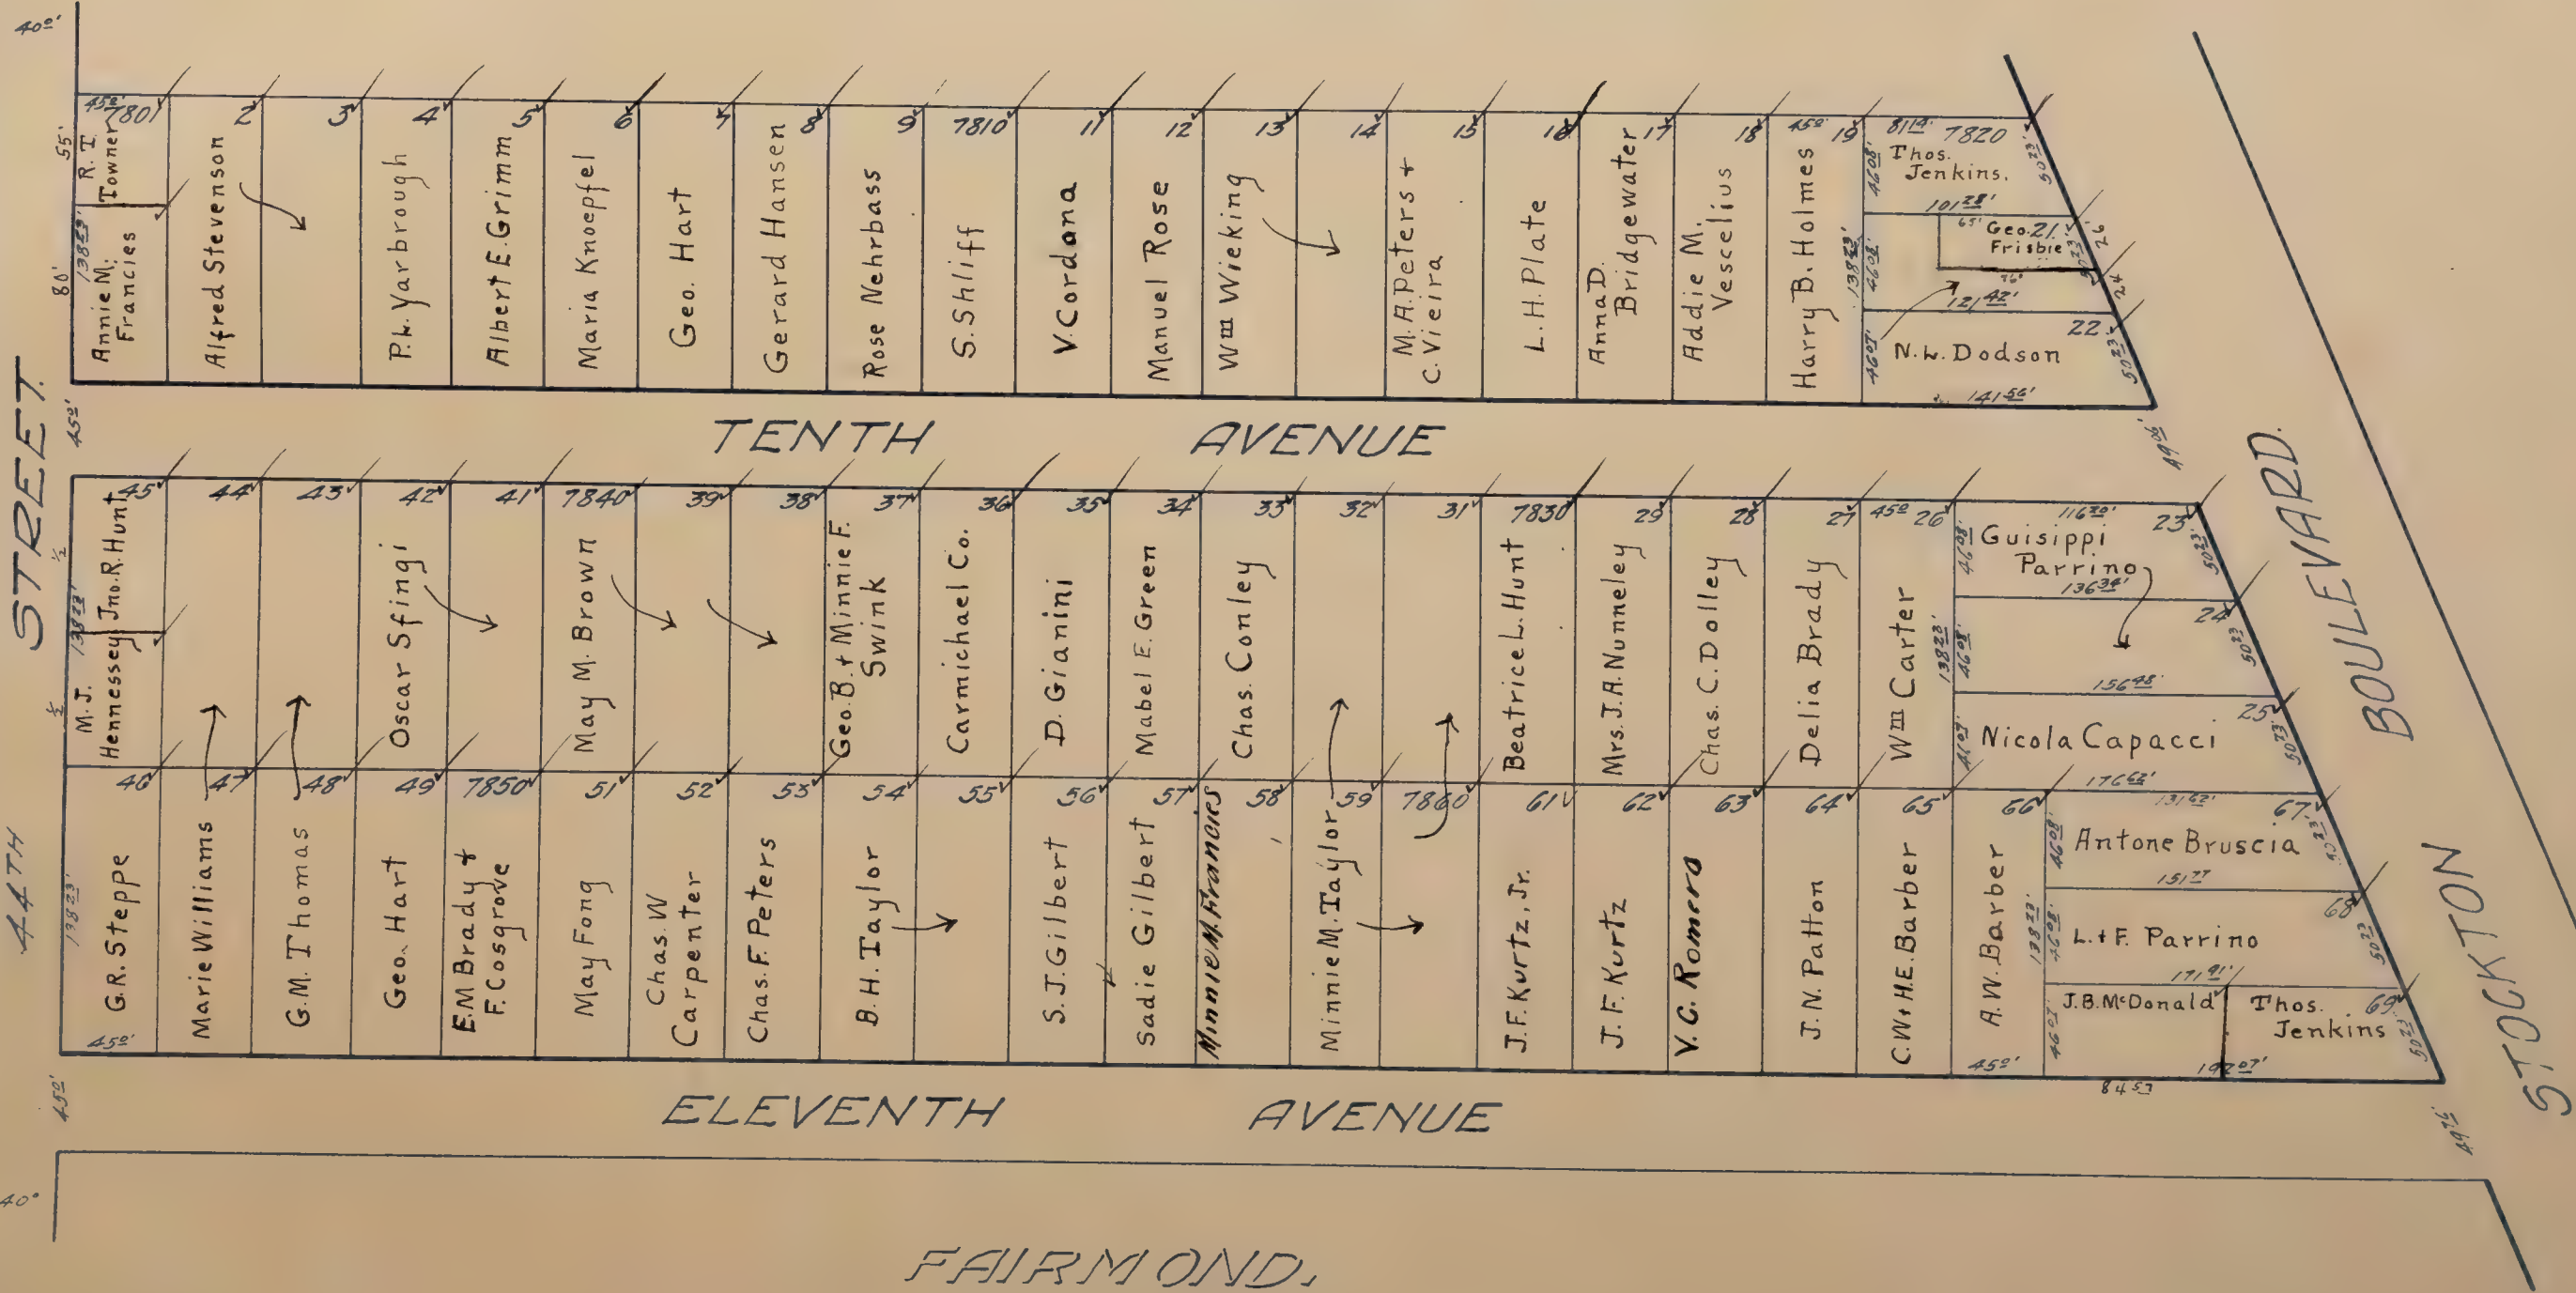 40º'
45º' 7801 2 3 4 5 6 7 8 9 7810 11 12 13 14 15 16 17 18 45º 19 81 14' 7820
55'
80'
138 23'
R. T.
Towner
Annie M.
Francies
Alfred Stevenson
P.L. Yarbrough
Albert E. Grimm
Maria Knoepfel
Geo. Hart
Gerard Hansen
Rose Nehrbass
S. Shliff
V. Cordona
Manuel Rose
Wm Wieking
M. A. Peters +
C. Vieira
L. H. Plate
Anna D.
Bridgewater
Addie M.
Vescelius
Harry B. Holmes
138 23'
46 08'
Thos.
Jenkins.
50 23'
101 28'
46 08'
65'
Geo. 21
Frisbie
50 23'
26'
24
121 42'
22
46 07'
N. L. Dodson
50 23'
141 56'
STREET.
45º'
TENTH AVENUE
49 06'
BOULEVARD.
45 44 43 42 41 7840 39 38 37 36 35 34 33 32 31 7830 29 28 27 45º 26 116 20' 23
½
138 23'
½
Jno. R. Hunt
M. J.
Hennessey
Oscar Sfingi
May M. Brown
Geo. B. + Minnie F.
Swink
Carmichael Co.
D. Gianini
Mabel E. Green
Chas. Conley
Beatrice L. Hunt
Mrs. J. A. Nunneley
Chas. C. Dolley
Delia Brady
Wm Carter
138 23'
46 08'
Guisippi
Parrino
50 23'
136 34'
24
46 08'
50 23'
156 48'
25
46 07'
Nicola Capacci
50 23'
176 62'
46 47 48 49 7850 51 52 53 54 55 56 57 58 59 7860 61 62 63 64 65 66 131 62' 67
44TH
138 23'
G. R. Steppe
45º'
Marie Williams
G. M. Thomas
Geo. Hart
E. M Brady +
F. Cosgrove
May Fong
Chas. W
Carpenter
Chas. F. Peters
B. H. Taylor
S. J. Gilbert
Sadie Gilbert
Minnie M. Francies
Minnie M. Taylor
J. F. Kurtz, Jr.
J. F. Kurtz
V. C. Romero
J. N. Patton
C. W. + H. E. Barber
A. W. Barber
45º'
138 23'
46 08'
Antone Bruscia
50 23'
151 77'
68
46 08'
L. + F. Parrino
50 23'
171 91'
69
46 07'
J. B. McDonald
Thos.
Jenkins
50 23'
192 07'
84 53
STOCKTON
45º'
ELEVENTH AVENUE
49 76'
40º
FAIRMOND.